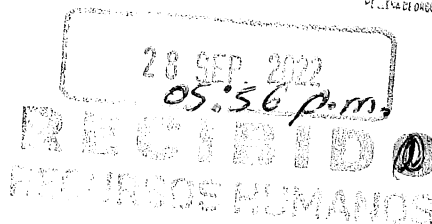 28 SEP. 2022
05:56 p.m.
RECIBIDO
RECURSOS HUMANOS